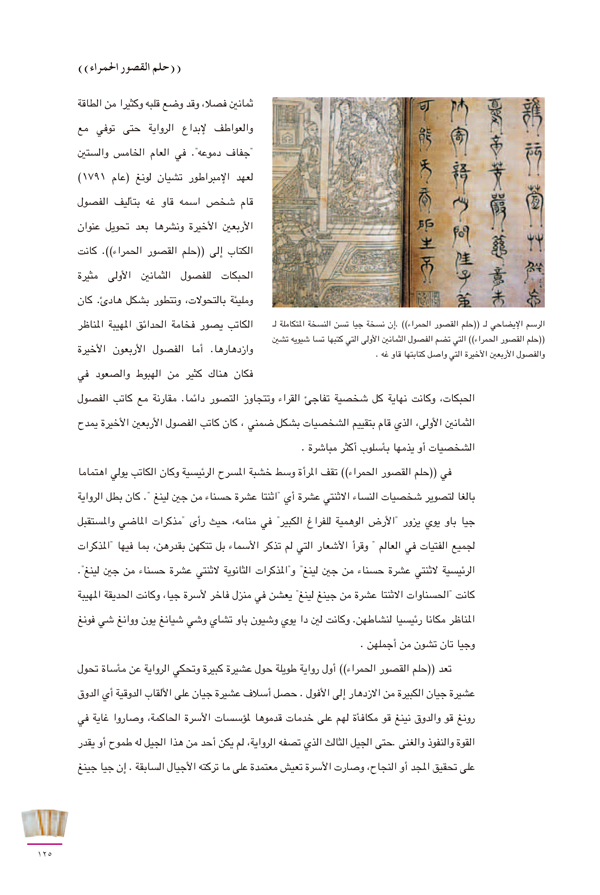 ((حلم القصور الحمراء))
ثمانين فصلا، وقد وضع قلبه وكثيرا من الطاقة
والعواطف لإبداع الرواية حتى توفي مع
"جفاف دموعه". في العام الخامس والستين
لعهد الإمبراطور تشيان لونغ (عام ١٧٩١)
قام شخص اسمه قاو غه بتأليف الفصول
الأربعين الأخيرة ونشرها بعد تحويل عنوان
الكتاب إلى ((حلم القصور الحمراء)). كانت
الحبكات للفصول الثمانين الأولى مثيرة
ومليئة بالتحولات، وتتطور بشكل هادئ. كان
الكاتب يصور فخامة الحدائق المهيبة المناظر
وازدهارها. أما الفصول الأربعون الأخيرة
فكان هناك كثير من الهبوط والصعود في
الرسم الإيضاحي لـ ((حلم القصور الحمراء)) .إن نسخة جيا تسن النسخة المتكاملة لـ
((حلم القصور الحمراء)) التي تضم الفصول الثمانين الأولى التي كتبها تسا شيويه تشين
والفصول الأربعين الأخيرة التي واصل كتابتها قاو غه .
الحبكات، وكانت نهاية كل شخصية تفاجئ القراء وتتجاوز التصور دائما. مقارنة مع كاتب الفصول
الثمانين الأولى، الذي قام بتقييم الشخصيات بشكل ضمني ، كان كاتب الفصول الأربعين الأخيرة يمدح
الشخصيات أو يذمها بأسلوب أكثر مباشرة .
في ((حلم القصور الحمراء)) تقف المرأة وسط خشبة المسرح الرئيسية وكان الكاتب يولي اهتماما
بالغا لتصوير شخصيات النساء الاثنتي عشرة أي "اثنتا عشرة حسناء من جين لينغ ". كان بطل الرواية
جيا باو يوي يزور "الأرض الوهمية للفراغ الكبير" في منامه، حيث رأى "مذكرات الماضي والمستقبل
لجميع الفتيات في العالم " وقرأ الأشعار التي لم تذكر الأسماء بل تتكهن بقدرهن، بما فيها "المذكرات
الرئيسية لاثنتي عشرة حسناء من جين لينغ" و"المذكرات الثانوية لاثنتي عشرة حسناء من جين لينغ".
كانت "الحسناوات الاثنتا عشرة من جينغ لينغ" يعشن في منزل فاخر لأسرة جيا، وكانت الحديقة المهيبة
المناظر مكانا رئيسيا لنشاطهن. وكانت لين دا يوي وشيون باو تشاي وشي شيانغ يون ووانغ شي فونغ
وجيا تان تشون من أجملهن .
تعد ((حلم القصور الحمراء)) أول رواية طويلة حول عشيرة كبيرة وتحكي الرواية عن مأساة تحول
عشيرة جيان الكبيرة من الازدهار إلى الأفول . حصل أسلاف عشيرة جيان على الألقاب الدوقية أي الدوق
رونغ قو والدوق نينغ قو مكافأة لهم على خدمات قدموها لمؤسسات الأسرة الحاكمة، وصاروا غاية في
القوة والنفوذ والغنى .حتى الجيل الثالث الذي تصفه الرواية، لم يكن أحد من هذا الجيل له طموح أو يقدر
على تحقيق المجد أو النجاح، وصارت الأسرة تعيش معتمدة على ما تركته الأجيال السابقة . إن جيا جينغ
١٢٥